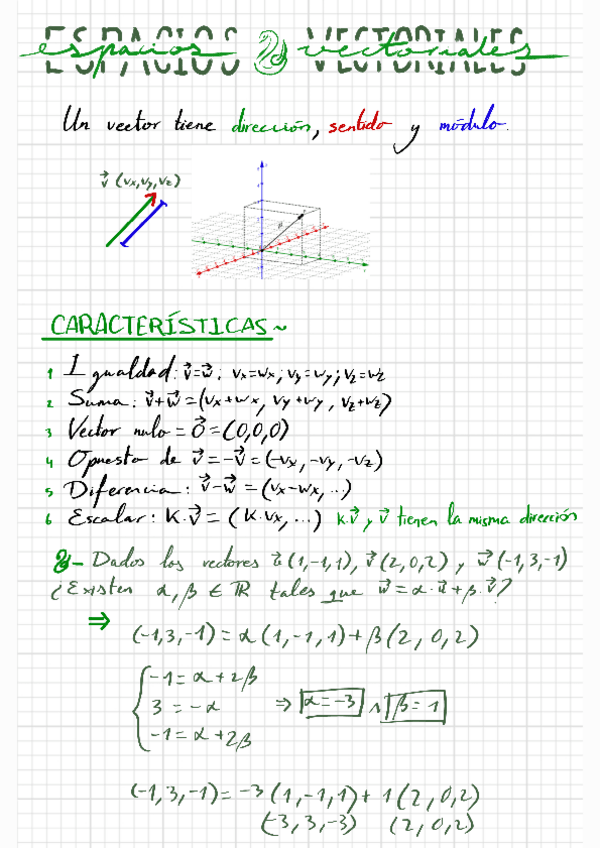 ESPACIOS VECTORIALES
espacios vectoriales
Un vector tiene dirección, sentido y módulo.
v⃗ (vx,vy,vz)
CARACTERÍSTICAS~
1 Igualdad: v⃗=w⃗; vx=wx; vy=wy; vz=wz
2 Suma: v⃗+w⃗=(vx+wx, vy+wy, vz+wz)
3 Vector nulo = 0⃗=(0,0,0)
4 Opuesto de v⃗=-v⃗=(-vx, -vy, -vz)
5 Diferencia: v⃗-w⃗ = (vx-wx,..)
6 Escalar: K·v⃗ = (K·vx,...) k·v⃗ y v⃗ tienen la misma dirección
- Dados los vectores u⃗(1,-1,1), v⃗(2,0,2) y w⃗(-1,3,-1)
¿Existen α,β ∈ ℝ tales que w⃗=α·u⃗+β·v⃗?
⇒
(-1,3,-1)=α(1,-1,1)+β(2,0,2)
-1=α+2β
3=-α ⇒ α=-3 ∧ β=1
-1=α+2β
(-1,3,-1)=-3(1,-1,1)+1(2,0,2)
(-3,3,-3) (2,0,2)